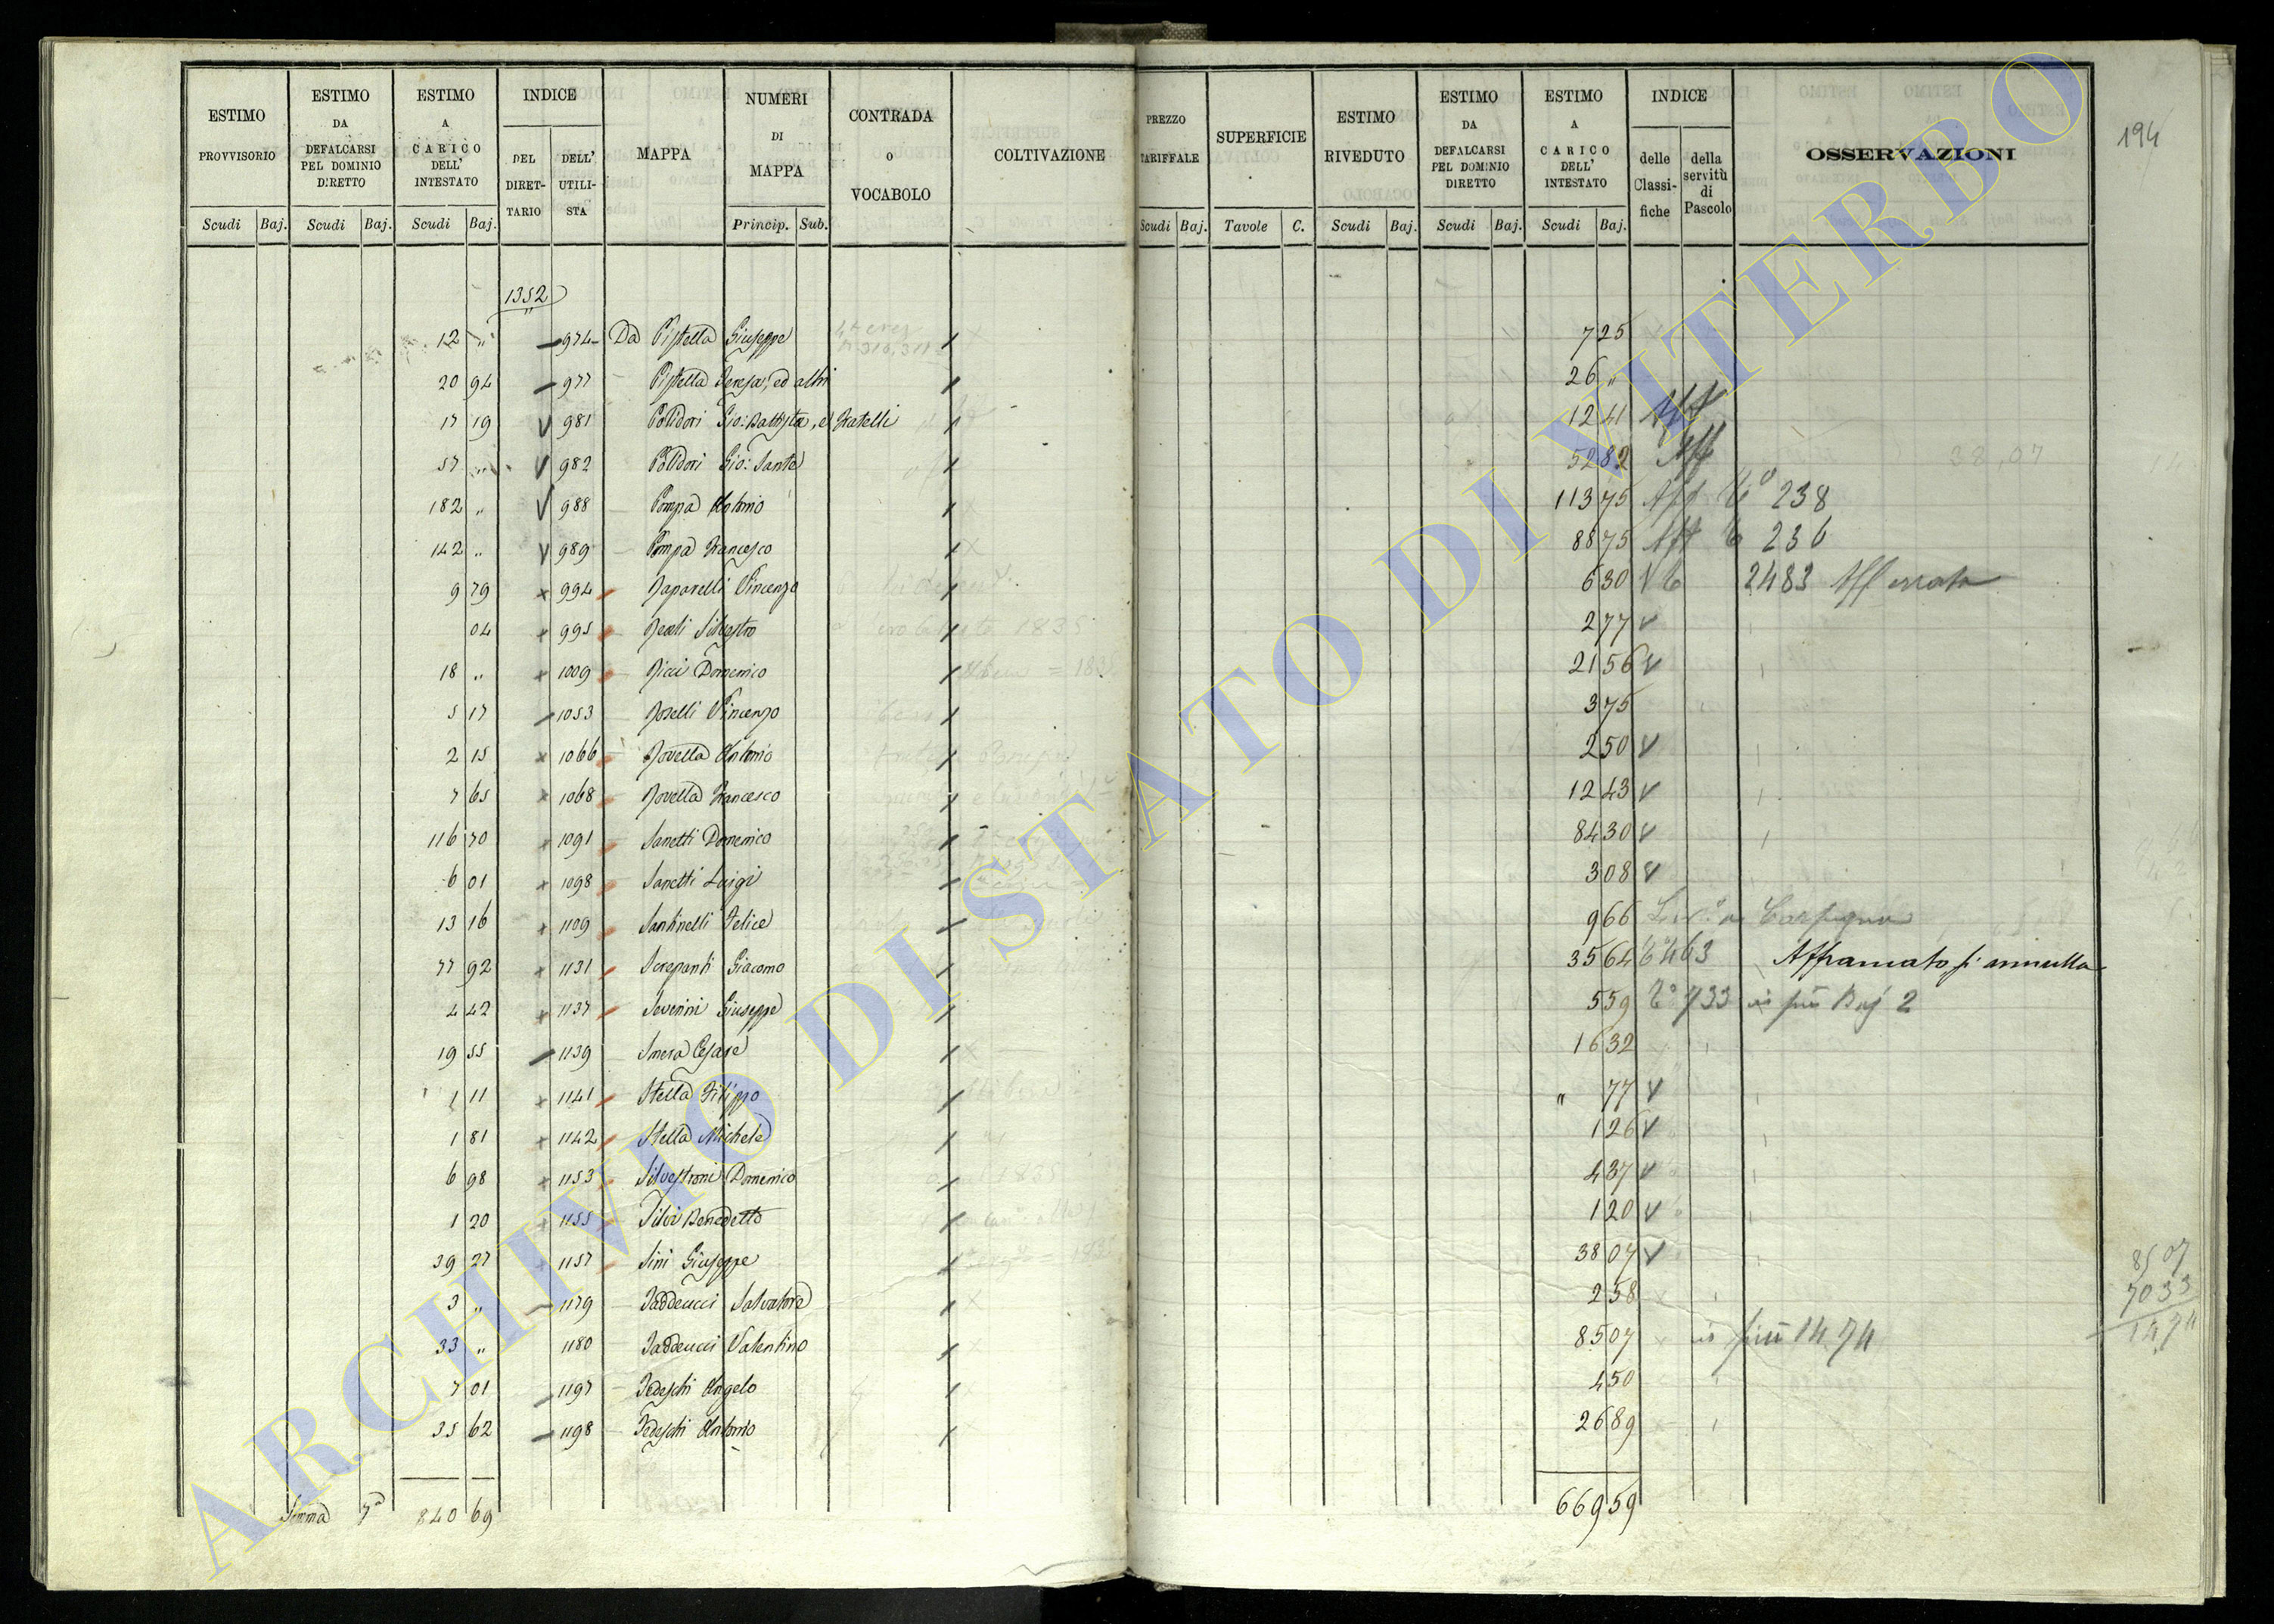 194
ESTIMO PROVVISORIO Scudi Baj.
ESTIMO DA DEFALCARSI PEL DOMINIO DIRETTO Scudi Baj.
ESTIMO A CARICO DELL' INTESTATO Scudi Baj.
INDICE DEL DIRETTARIO DELL' UTILISTA
MAPPA
NUMERI DI MAPPA Princip. Sub.
CONTRADA O VOCABOLO
COLTIVAZIONE
PREZZO TARIFFALE Scudi Baj.
SUPERFICIE Tavole C.
ESTIMO RIVEDUTO Scudi Baj.
ESTIMO DA DEFALCARSI PEL DOMINIO DIRETTO Scudi Baj.
ESTIMO A CARICO DELL' INTESTATO Scudi Baj.
INDICE delle Classifiche della servitù di Pascolo
OSSERVAZIONI
1352
12 " 974 Da Pistella Giuseppe 7 25
20 94 977 Pistella Teresa, ed altri 26 "
17 19 981 Polidori Gio: Battista, e Fratelli 12 41 Aff
57 " 982 Polidori Gio: Sante 52 82 Aff
182 " 988 Pompa Antonio 113 75 Aff 238
142 " 989 Pompa Francesco 88 75 Aff 236
9 79 994 Raparelli Vincenzo 6 30 2483 Aff errata
04 995 Reali Silvestro 2 77
18 " 1009 Ricci Domenico 21 56
5 17 1053 Roselli Vincenzo 3 75
2 15 1066 Rovella Antonio 2 50
7 65 1068 Rovella Francesco 12 43
116 70 1091 Sanetti Domenico 84 30
6 01 1098 Sanetti Luigi 3 08
13 16 1109 Santinelli Felice 9 66
77 92 1131 Serepanti Giacomo 35 64 463 Affrancato si annulla
4 42 1137 Severini Giuseppe 5 59 733 è più Baj 2
19 55 1139 Smera Cesare 16 32
1 11 1141 Stella Filippo " 77
1 81 1142 Stella Michele 1 26
6 98 1153 Silvestroni Domenico 4 37
1 20 1155 Silvi Benedetto 1 20
39 27 1157 Sini Giuseppe 38 07
3 " 1179 Taddeucci Salvatore 2 58
33 " 1180 Taddeucci Valentino 85 07 è più 14.74
7 01 1197 Tedeschi Angelo 4 50
35 62 1198 Tedeschi Antonio 26 89
Somma 7a 840 69 669 59
85 07
70 33
14 74
ARCHIVIO DI STATO DI VITERBO